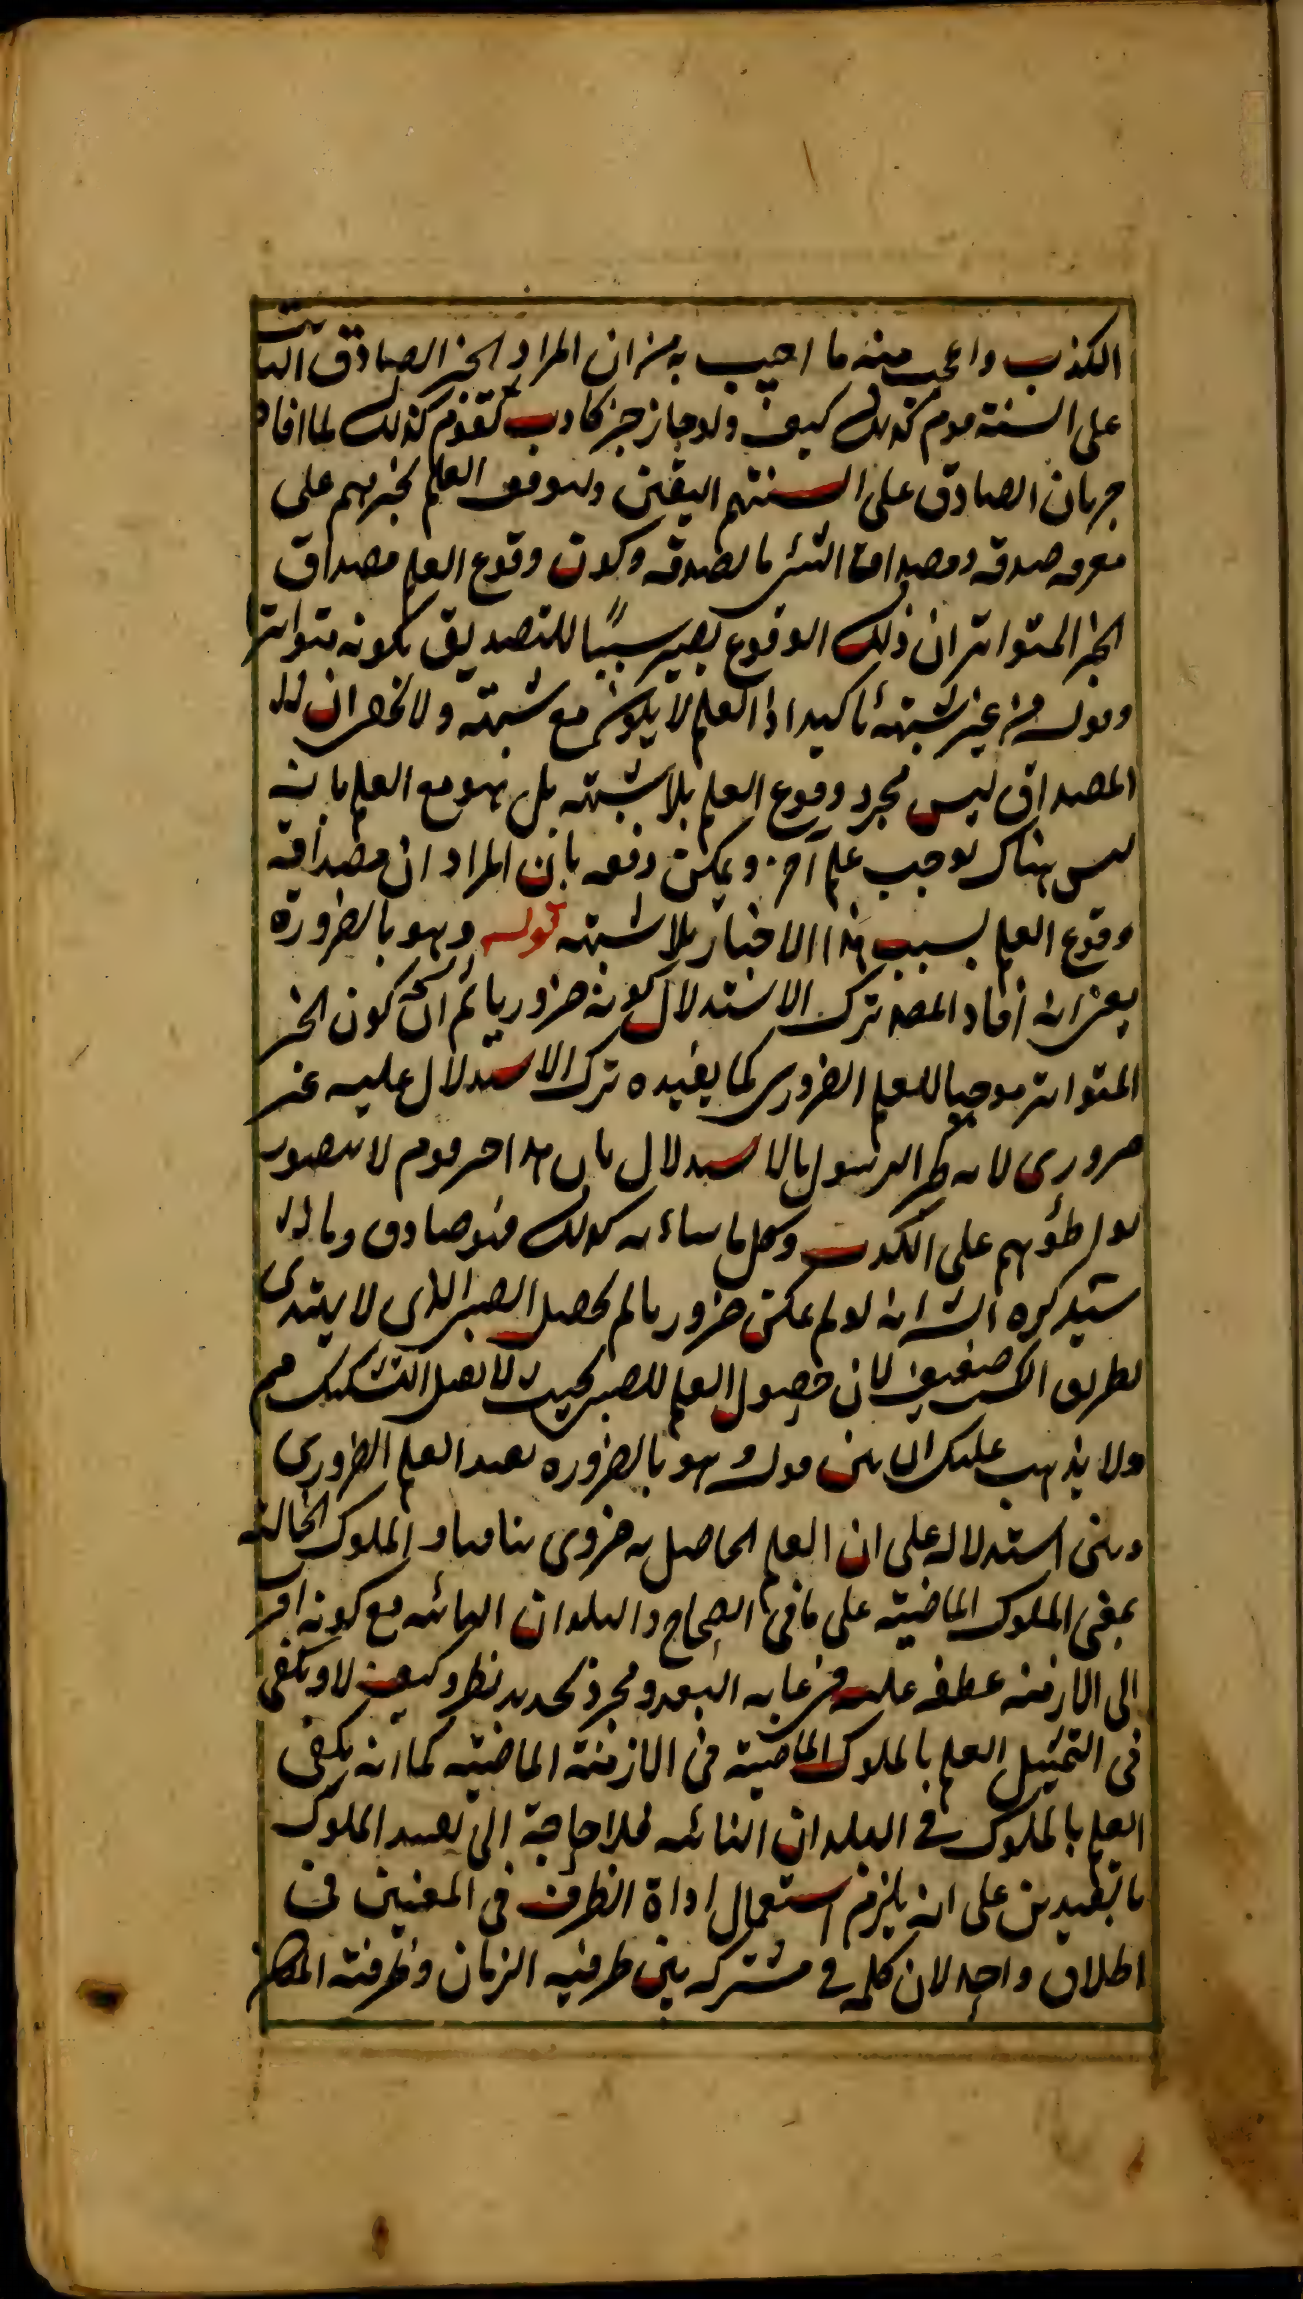 الكذب واعجب منه ما اجيب به من ان المراد الخبر الصادق الثابت
على السنة قوم كذلك كيف ولو جاز خبر كاذب لقوم كذلك لما افاد
جريان الصادق على السنتهم اليقين ولتوقف العلم بخبرهم على
معرفة صدقه ومصداق الشئ ما يصدقه وكون وقوع العلم مصداق
الخبر المتواتر ان ذلك الوقوع يصير سببًا للتصديق بكونه متواترا
وقوله من غير شبهة تأكيد اذ العلم لا يكون مع شبهة ولا يخفى ان
المصداق ليس مجرد وقوع العلم بلا شبهة بل هو مع العلم بانه
ليس هناك موجب علم آخر ويمكن دفعه بان المراد ان مصداقه
وقوع العلم بسبب هذا الاخبار بلا شبهة قوله وهو بالضرورة
يعني انه افاد المصـ ترك الاستدلال كونه ضروريا ثم ان كون الخبر
المتواتر موجبا للعلم الضرورى كما يفيده ترك الاستدلال عليه غير
ضرورى لانه الاستدلال بان هذا خبر قوم لا يتصور
تواطؤهم على الكذب وكل ما شانه كذلك فهو صادق وما
سيذكره الشـ انه لو لم يكن ضروريا لم يحصل للصبى الذى لا يهتدى
بطريق الكسب ضعيف لان حصول العلم للصبى بحيث لا يقبل التشكيك مم
ولا يذهب عليك ان بين قوله وهو بالضرورة يفيد العلم الضرورى
وبين استدلاله على ان العلم الحاصل به ضرورى تنافيا و الملوك الخالية
بمعنى الملوك الماضية على ما فى الصحاح والبلدان النائية مع كونه اقرب
الى الازمنة عطفه عليه فى غاية البعد ومجرد تحديد نظر وكيف لا ويكفى
فى التمثيل العلم بالملوك الماضية فى الازمنة الماضية كما انه يكفى
العلم بالملوك فى البلدان النائية فلا حاجة الى تقييد الملوك
بالقيدين على انه يلزم استعمال اداة الظرف فى المعنيين فى
اطلاق واحد لان كلمة فى مشتركة بين ظرفية الزمان وظرفية المكان